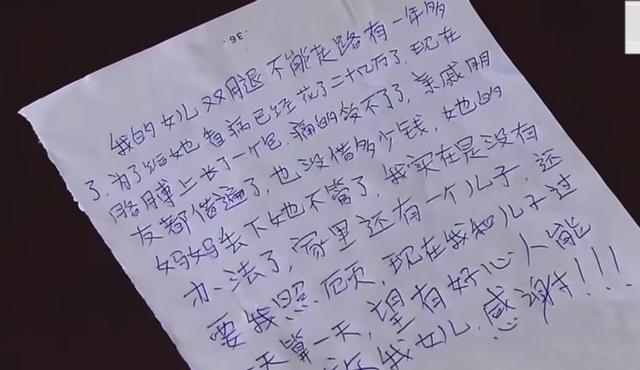 ·36·
我的女儿双腿不能走路有一年多
了,为了给她查病已经花了二十几万了,现在
胳膊上长了一个包,痛的受不了了,亲戚朋
友都借遍了,也没借多少钱,她的
妈妈丢下她不管了,我实在是没有
办法了,家里还有一个儿子,还
要我照顾,现在我和儿子过
一天算一天,望有好心人能
我女儿,感谢!!!